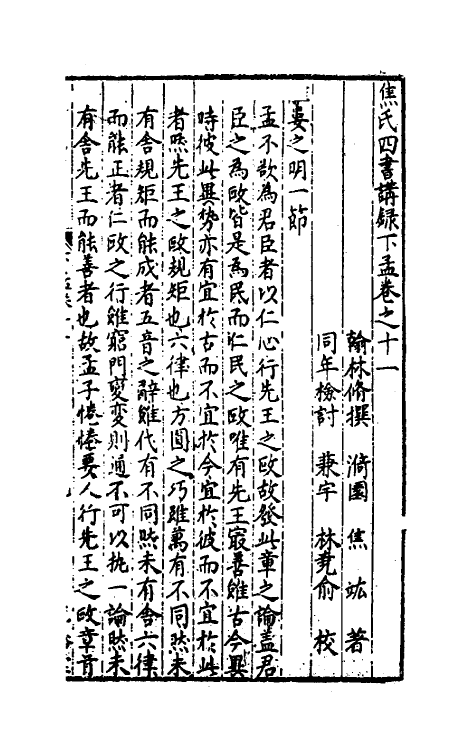 焦氏四書講録下孟卷之十一
翰林脩撰 漪園 焦 竑 著
同年檢討 兼宇 林堯俞 校
婁之明一節
孟不欲為君臣者以仁心行先王之政故發此章之論盖君
臣之為政皆是為民而仁民之政唯有先王㝡善雖古今異
時彼此異勢亦有宜扵古而不宜扵今宜扵彼而不宜扵此
者然先王之政規矩也六律也方圓之巧雖萬有不同然未
有舍規矩而能成者五音之辭雖代有不同然未有舍六律
而能正者仁政之行雖窮門變变則通不可以執一論然未
有舍先王而能善者也故孟子惓惓要人行先王之政章首